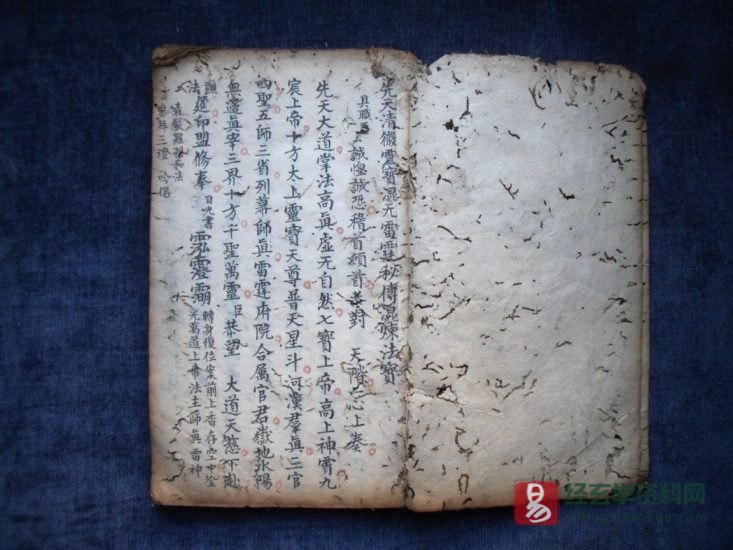 先天清微靈寶混元雷霆秘傳混煉法寶
具職臣 上誠惶誠恐稽首頓首恭對 天階 心上奏
先天大道掌法高眞虛无自然七寶上帝高上神霄九
宸上帝十方太上靈寶天尊普天星斗河漢羣眞三官
四聖五師三省列幕師眞雷霆府院合属官君嶽地水陽
無邊眞宰三界十方千聖萬靈臣恭望 大道天慈下赴
醮筵印盟修奉
轉身復位案前上香存空中金
光萬道上帝法主師眞雷神
三禮
易
经玄学资料网